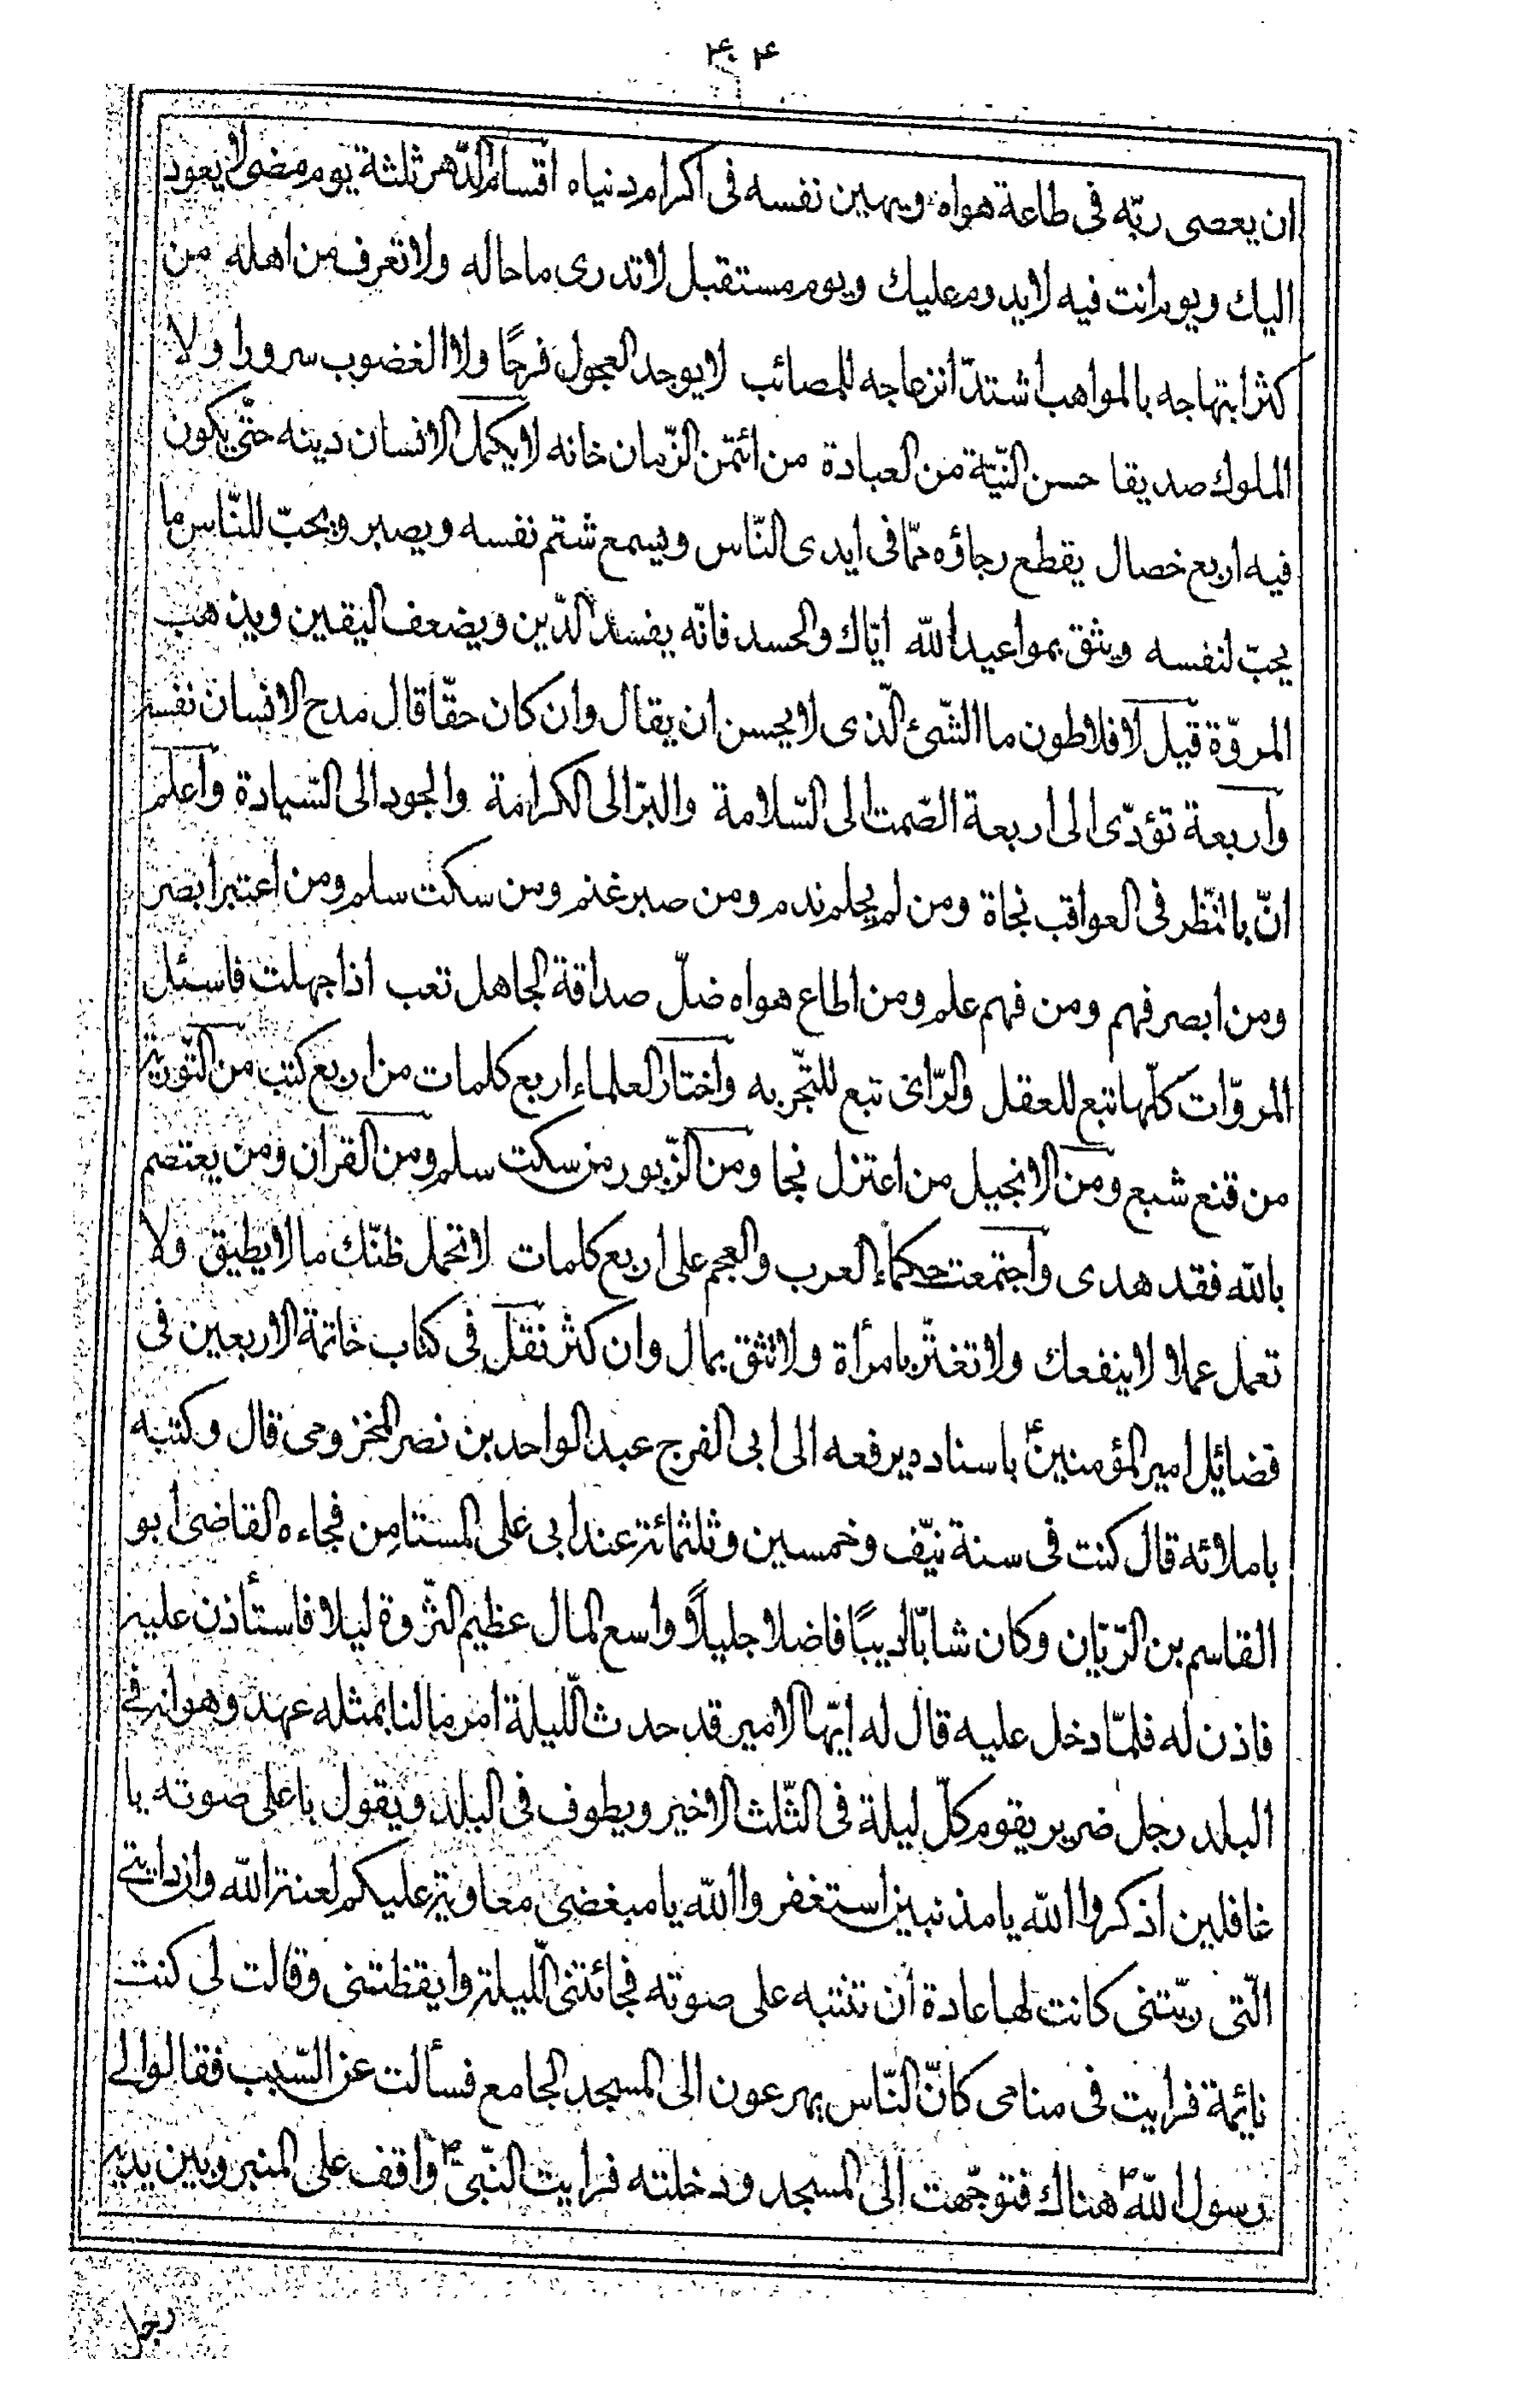 ۴۰۴
ان يعصى ربّه فى طاعة هواه ويهين نفسه فى اكرام دنياه اقسام الدّهر ثلثة يوم مضى لا يعود
اليك ويوم انت فيه لا يدوم عليك ويوم مستقبل لا تدرى ما حاله ولا تعرف من اهله من
كثر ابتهاجه بالمواهب اشتدّ انزعاجه للمصائب لا يوجد العجول فرحًا ولا الغضوب سرورا ولا
الملوك صديقا حسن النّيّة من العبادة من ائتمن الزّمان خانه لا يكمل الانسان دينه حتّى يكون
فيه اربع خصال يقطع رجاؤه ممّا فى ايدى النّاس ويسمع شتم نفسه ويصبر ويحبّ للنّاس ما
يحبّ لنفسه ويثق بمواعيد اللّه ايّاك والحسد فانّه يفسد الدّين ويضعف اليقين ويذهب
المروّة قيل لافلاطون ما الشّئ الّذى لا يحسن ان يقال وان كان حقّا قال مدح الانسان نفسه
واربعة تؤدّى الى اربعة الصّمت الى السّلامة والبرّ الى الكرامة والجود الى السّيادة واعلم
انّ بالنّظر فى العواقب نجاة ومن لم يحلم ندم ومن صبر غنم ومن سكت سلم ومن اعتبر ابصر
ومن ابصر فهم ومن فهم علم ومن اطاع هواه ضلّ صداقة الجاهل تعب اذا جهلت فاسئل
المروّات كلّها تبع للعقل والرّاى تبع للتّجربه واختار العلماء اربع كلمات من اربع كتب من التّورية
من قنع شبع ومن الانجيل من اعتزل نجا ومن الزّبور من سكت سلم ومن القران ومن يعتصم
باللّه فقد هدى واجتمعت حكماء العرب والعجم على اربع كلمات لا تحمل ظنّك ما لا يطيق ولا
تعمل عملا لا ينفعك ولا تغترّ بامرأة ولا تثق بمال وان كثر نقل فى كتاب خاتمة الاربعين فى
فضائل امير المؤمنينؑ باسناده يرفعه الى ابى الفرج عبد الواحد بن نصر المخزومى قال وكتبه
باملائه قال كنت فى سنة نيّف وخمسين وثلثمائة عند ابى على المستامن فجاءه القاضى ابو
القاسم بن الرّيّان وكان شابّا اديبًا فاضلا جليلًا واسع المال عظيم الثّروة ليلا فاستأذن عليه
فاذن له فلمّا دخل عليه قال له ايّها الامير قد حدث اللّيلة امر ما لنا بمثله عهد وهو انه فى
البلد رجل ضرير يقوم كلّ ليلة فى الثّلث الاخير ويطوف فى البلد ويقول باعلى صوته يا
غافلين اذكروا اللّه يا مذنبين استغفروا اللّه يا مبغضى معاوية عليكم لعنة اللّه وان دايتى
الّتى ربّتنى كانت لها عادة ان تنتبه على صوته فجائتنى اللّيلة وايقظتنى وقالت لى كنت
نائمة فرايت فى منامى كانّ النّاس يهرعون الى المسجد الجامع فسألت عن السّبب فقالوا لى
رسول اللّهؐ هناك فتوجّهت الى المسجد ودخلته فرايت النّبىّؐ واقف على المنبر وبين يديه
رجل